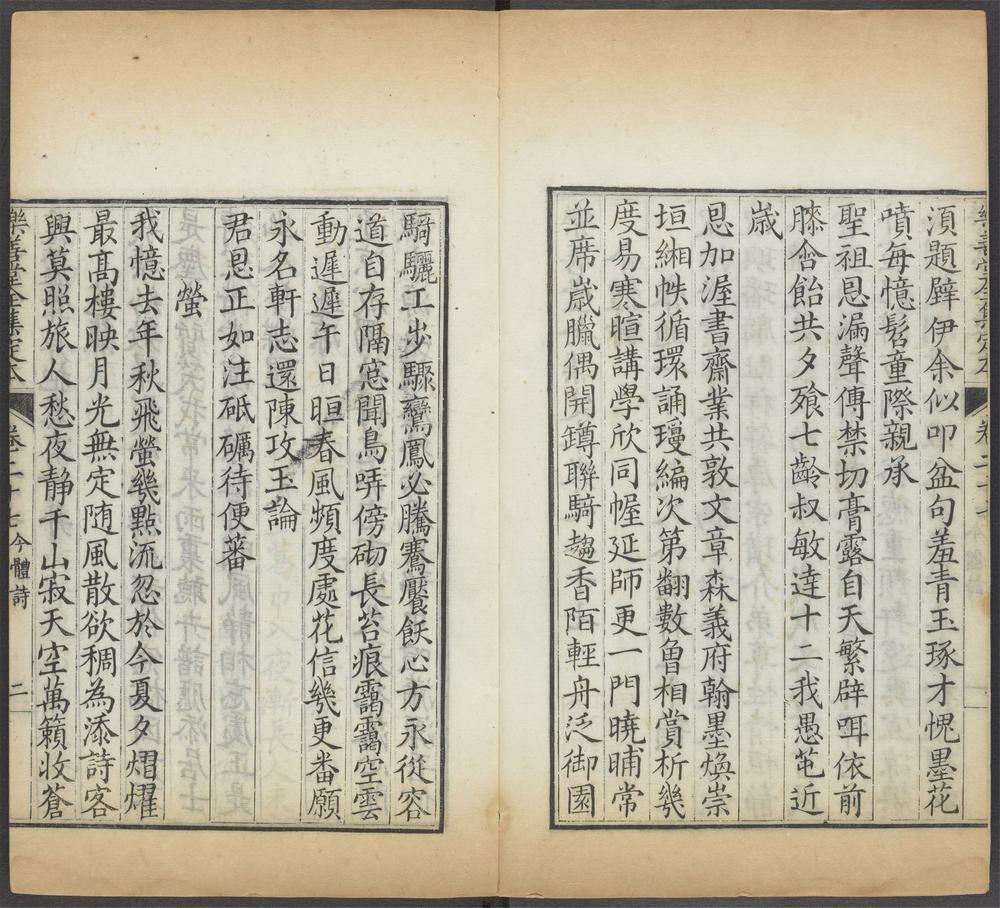 樂善堂全集定本 卷二十七
湏題壁伊余似叩盆句羞青玉琢才愧墨花
噴每憶髫童際親承
聖祖恩漏聲傳禁切膏露自天繁辟咡依前
膝含飴共夕飱七齡叔敏達十二我愚芚近
歲
恩加渥書齋業共敦文章森義府翰墨煥崇
垣緗帙循環誦瓊編次第翻數曾相賞析幾
度易寒暄講學欣同幄延師更一門曉晡常
並席歲臘偶開罇聯騎趨香陌輕舟泛御園
騎驪工步驟鸞鳳必騰騫饜飫心方永從容
道自存隔窓聞鳥哢傍砌長苔痕靄靄空雲
動遲遲午日暄春風頻度處花信幾更番願
永名軒志還陳攻玉論
君恩正如注砥礪待便蕃
螢
我憶去年秋飛螢幾點流忽於今夏夕熠燿
最髙樓映月光無定随風散欲稠為添詩客
興莫照旅人愁夜靜千山寂天空萬籟收蒼
樂善堂全集定本 卷二十七今體詩 二